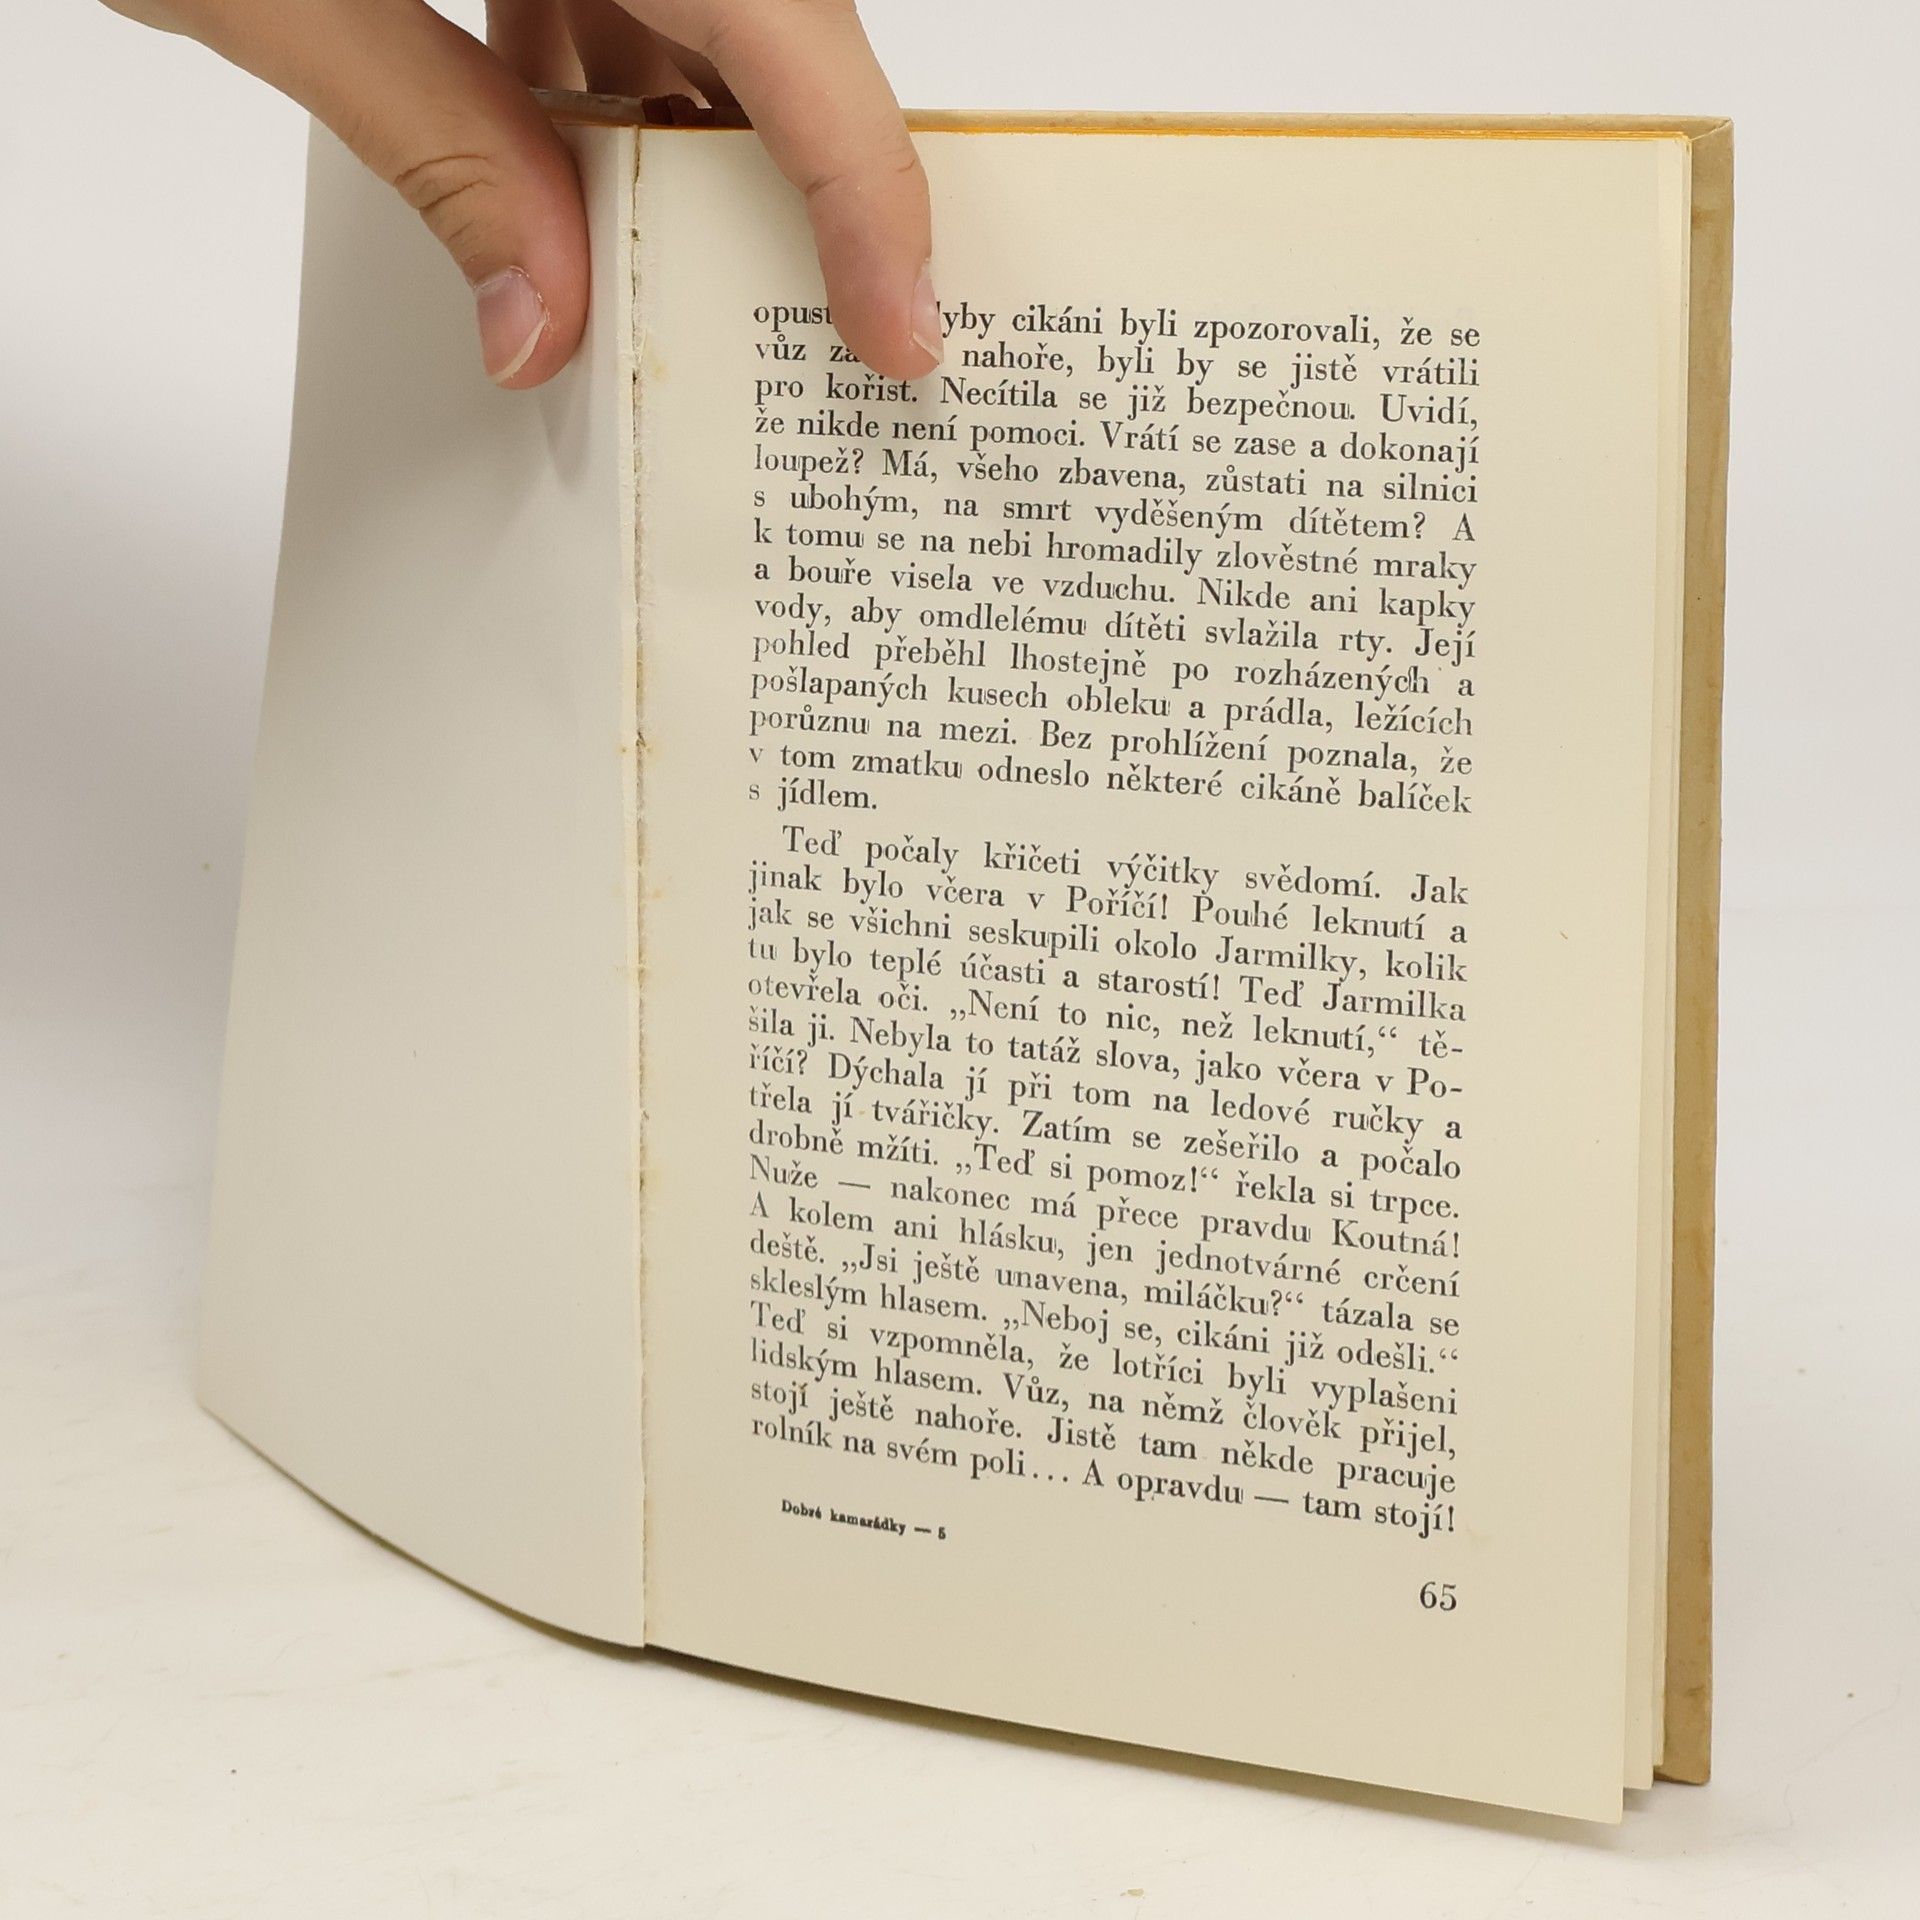 cikáni byli zpozorovali, že se
vůz nahoře, byli by se jistě vrátili
pro kořist. Necítila se již bezpečnou. Uvidí,
že nikde není pomoci. Vrátí se zase a dokonají
loupež? Má, všeho zbavena, zůstati na silnici
s ubohým, na smrt vyděšeným dítětem? A
k tomu se na nebi hromadily zlověstné mraky
a bouře visela ve vzduchu. Nikde ani kapky
vody, aby omdlelému dítěti svlažila rty. Její
pohled přeběhl lhostejně po rozházených a
pošlapaných kusech obleku a prádla, ležících
porůznu na mezi. Bez prohlížení poznala, že
v tom zmatku odneslo některé cikáně balíček
s jídlem.
Teď počaly křičeti výčitky svědomí. Jak
jinak bylo včera v Poříčí! Pouhé leknutí a
jak se všichni seskupili okolo Jarmilky, kolik
tu bylo teplé účasti a starostí! Teď Jarmilka
otevřela oči. „Není to nic, než leknutí,“ tě-
šila ji. Nebyla to tatáž slova, jako včera v Po-
říčí? Dýchala jí při tom na ledové ručky a
třela jí tvářičky. Zatím se zešeřilo a počalo
drobně mžíti. „Teď si pomoz!“ řekla si trpce.
Nuže — nakonec má přece pravdu Koutná!
A kolem ani hlásku, jen jednotvárné crčení
deště. „Jsi ještě unavena, miláčku?“ tázala se
skleslým hlasem. „Neboj se, cikáni již odešli.“
Teď si vzpomněla, že lotříci byli vyplašeni
lidským hlasem. Vůz, na němž člověk přijel,
stojí ještě nahoře. Jistě tam někde pracuje
rolník na svém poli... A opravdu — tam stojí!
Dobré kamarádky — 5
65